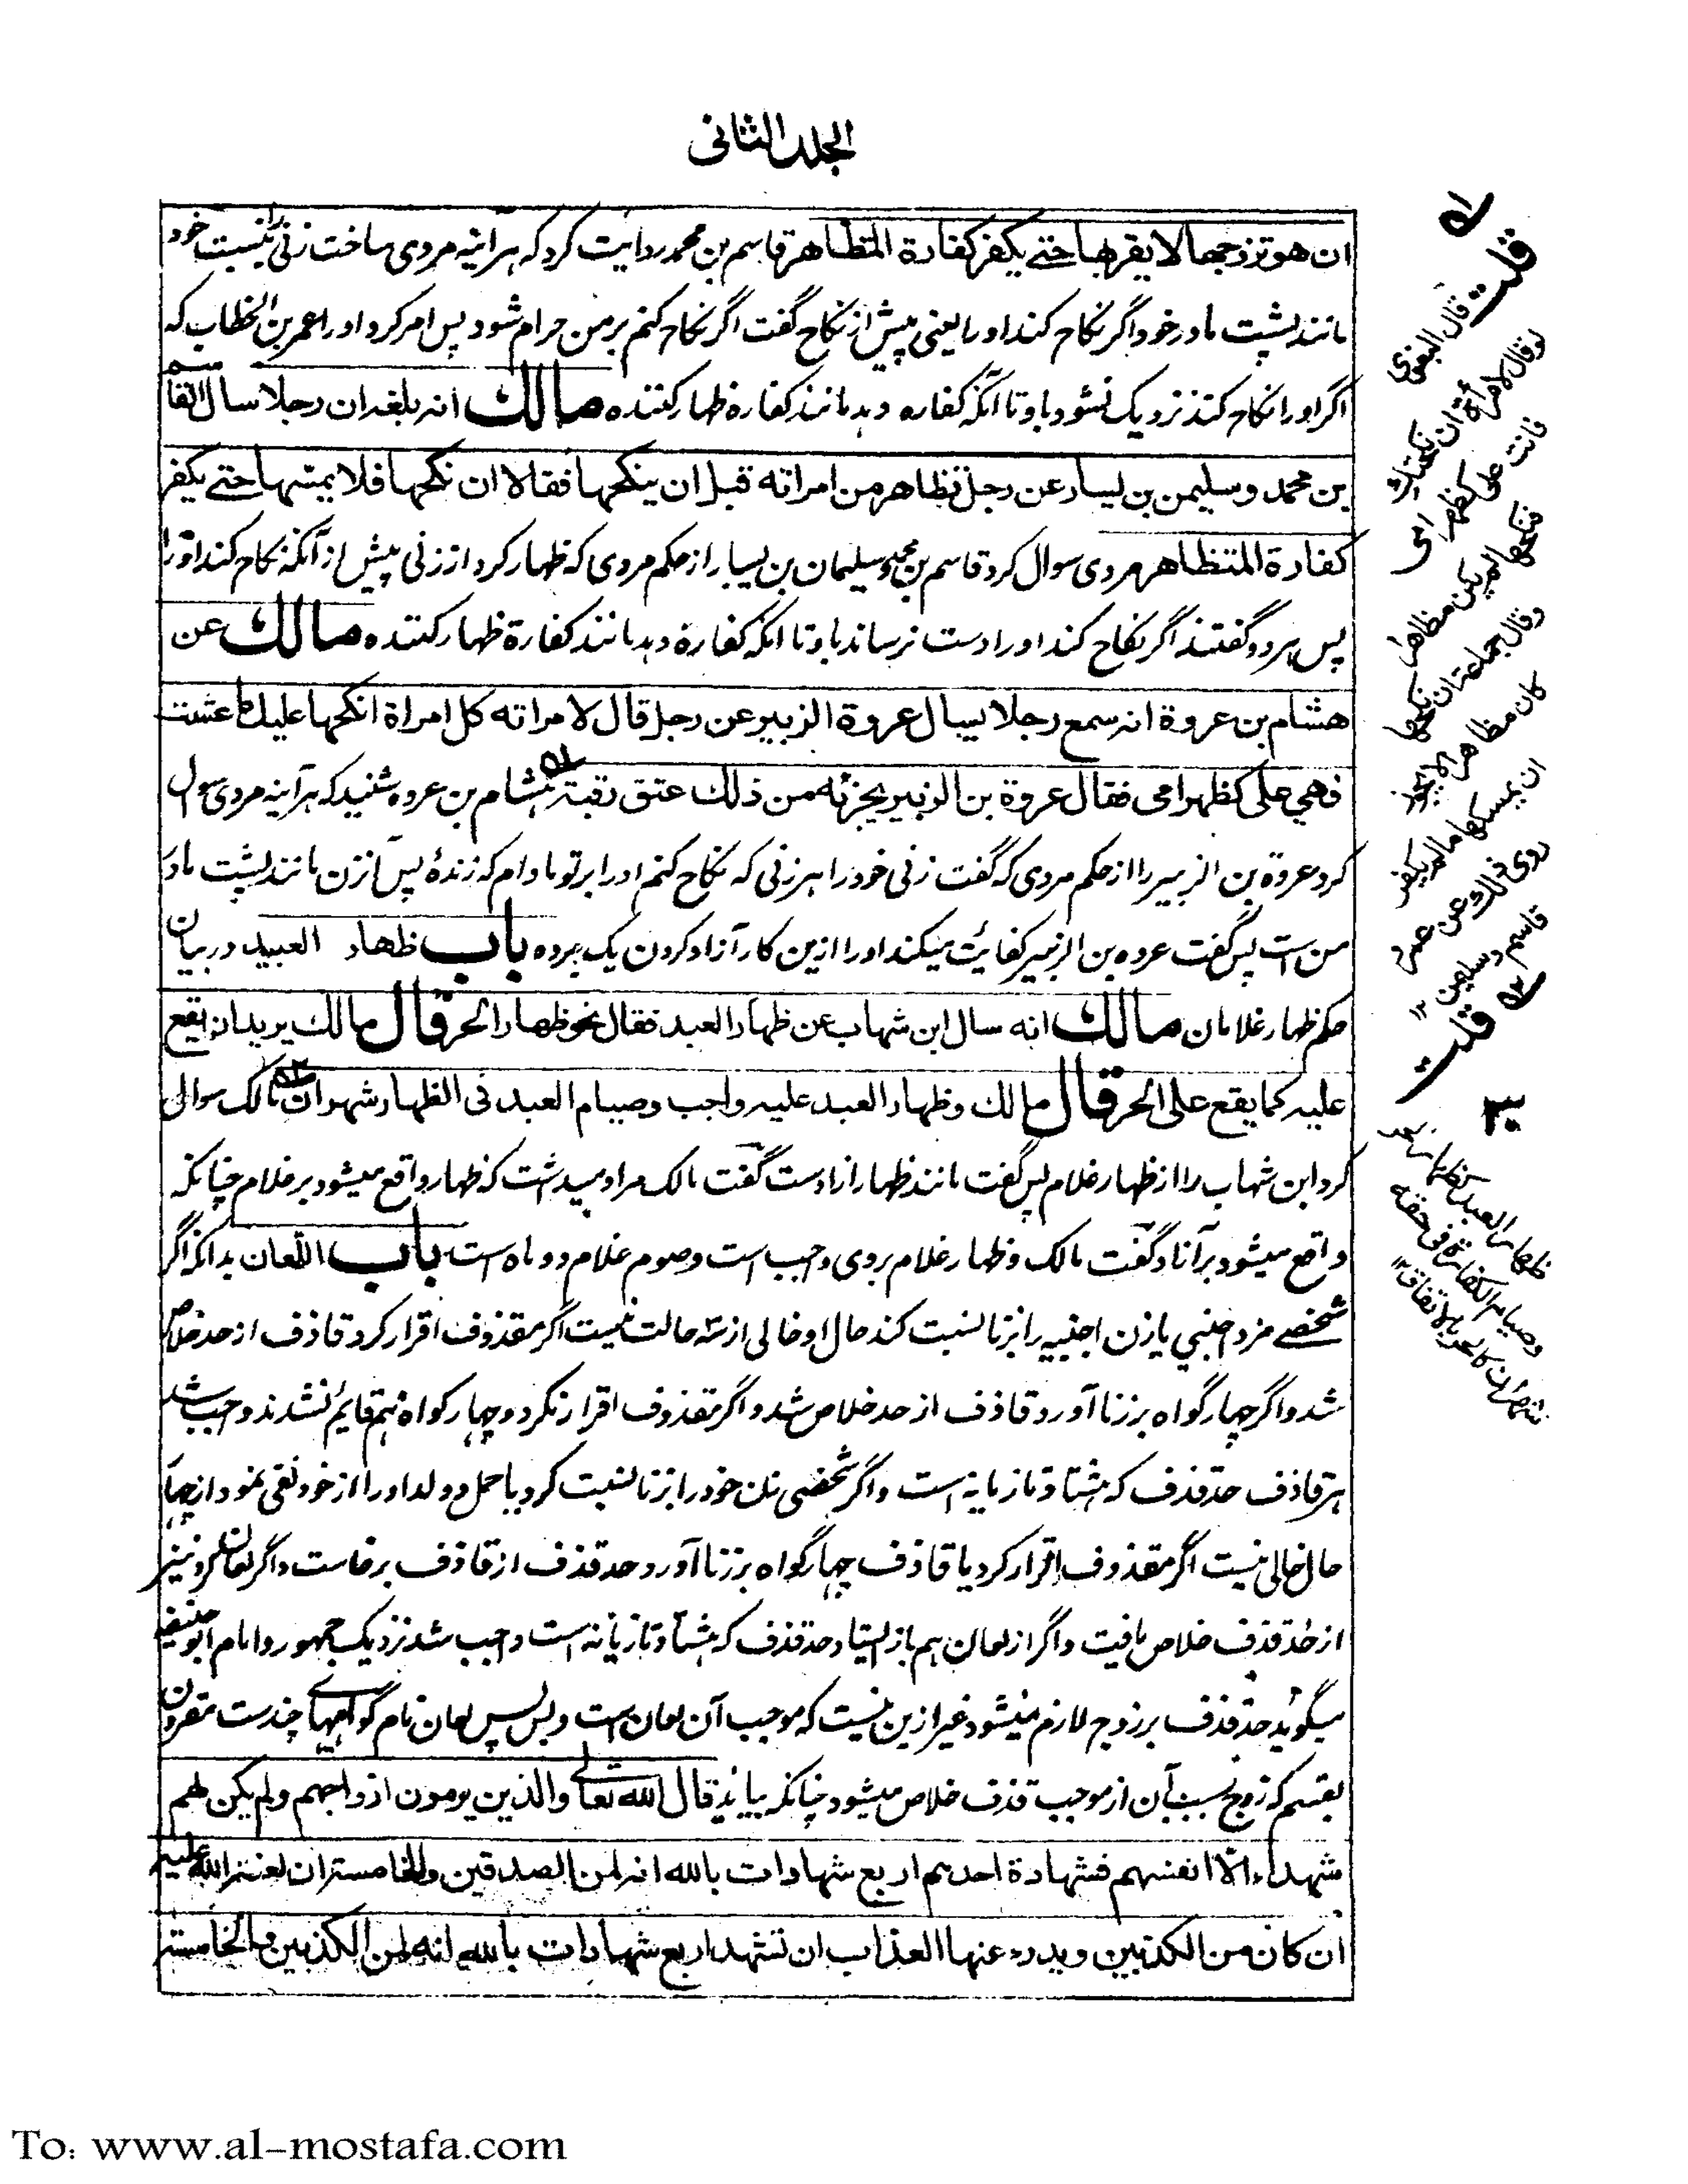 الجلد الثانى
ان هو تزوجها لا يقربها حتے يكفر كفارة المتظاهر قاسم بن محمد روايت كرد كه هر آئينه مردى ساخت زنى را نسبت خود
مانند پشت مادر خود اگر نكاح كند او را يعنى پيش از نكاح گفت اگر نكاح كنم بر من حرام شود پس امر كرد او را عمر بن الخطاب كه
اگر او را نكاح كند نزديک نشود باو تا آنكه كفاره دهد مانند كفاره ظهار كننده مالك انه بلغه ان رجلا سال القاسم
بن محمد و سليمن بن يسار عن رجل تظاهر من امراته قبل ان ينكحها فقالا ان نكحها فلا يمسها حتے يكفر
كفارة المتظاهر مردى سوال كرد قاسم بن محمد و سليمان بن يسار از حكم مردى كه ظهار كرد از زنى پيش از آنكه نكاح كند او را
پس هر دو گفتند اگر نكاح كند او را دست نرساند باو تا آنكه كفارة دهد مانند كفارة ظهار كننده مالك عن
هشام بن عروة انه سمع رجلا يسال عروة الزبير عن رجل قال لامراته كل امراة انكحها عليك ما عشت
فهي على كظهر امى فقال عروة بن الزبير يجزئه من ذلك عتق رقبة هشام بن عروه شنيد كه هر آينه مردى سوال
كرد عروة بن الزبير را از حكم مردى كه گفت زنى خود را هر زنى كه نكاح كنم او را بر تو مادام كه زندۀ پس آن زن مانند پشت مادر
من است پس گفت عروه بن الزبير كفايت ميكند او را ازين كار آزاد كردن يک برده باب ظهار العبيد در بيان
حكم ظهار غلامان مالك انه سال ابن شهاب عن ظهار العبد فقال نحو ظهار الحر قال مالك يريد انه يقع
عليه كما يقع على الحر قال مالك وظهار العبد عليه واجب وصيام العبد فى الظهار شهران مالک سوال
كرد ابن شهاب را از ظهار غلام پس گفت مانند ظهار آزاد ست گفت مالک مراد ميداشت كه ظهار واقع ميشود بر غلام چنانكه
واقع ميشود بر آزاد و گفت مالک و ظهار غلام بروى واجب است و صوم غلام دو ماه است باب اللعان بدانكه اگر
شخصے مرد اجنبي يا زن اجنبيه را بزنا نسبت كند حال او خالى از سه حالت نيست اگر مقذوف اقرار كرد قاذف از حد خلاص
شد و اگر چهار گواه بر زنا آورد قاذف از حد خلاص شد و اگر مقذوف اقرار نكرد و چهار گواه هم قايم نشدند واجب شد
بر قاذف حد قذف كه هشتاد تازيانه است و اگر شخصى زن خود را بزنا نسبت كرد يا حمل و ولد او را از خود نفى نمود از چهار
حال خالى نيست اگر مقذوف اقرار كرد يا قاذف چهار گواه بر زنا آورد حد قذف از قاذف برخاست و اگر لعان كرد نيز
از حد قذف خلاص يافت و اگر از لعان هم باز ايستاد حد قذف كه هشتاد تازيانه است واجب شد نزديک جمهور و امام ابو حنيفه
ميگويد حد قذف بر زوج لازم نميشود غير ازين نيست كه موجب آن لعان است و بس پس لعان نام گواهيهاى چند ست مقرون
بقسم كه زوج بسبب آن از موجب قذف خلاص ميشود چنانكه بيايد قال الله تعالى والذين يرمون ازواجهم ولم يكن لهم
شهداء الّا انفسهم فشهادة احدهم اربع شهادات بالله انه لمن الصدقين والخامسة ان لعنة الله عليه
ان كان من الكذبين ويدرء عنها العذاب ان تشهد اربع شهادات بالله انه لمن الكذبين والخامسة
له
قلت قال البغوى
لو قال لامرأة ان نكحتك
فانت على كظهر امى
فنكحها لم يكن مظاهرا
وقال جماعة ان نكحها
كان مظاهرا لا يجوز
ان يمسكها ما لم يكفر
روى ذلك عن عمر
قاسم وسليمن ۱۲
قلت
ظهار العبد كظهار الحر
وصيام الكفارة فى حقه
شهران كالحر بالاتفاق ۱۲
To: www.al-mostafa.com